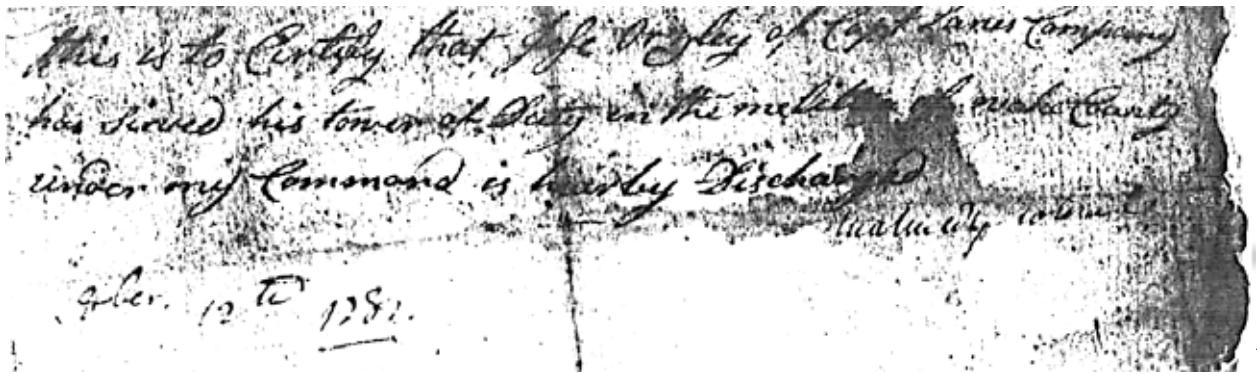 this is to Certify that Jesse of Capt Lanes Company
has Sirved his tower of Duty in the of wake County
under my Command is hearby Discharged
9ber. 12th 1782.